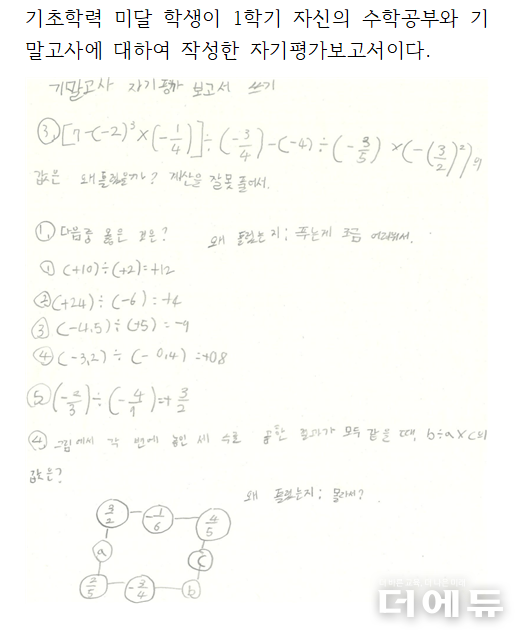 기초학력 미달 학생이 1학기 자신의 수학공부와 기
말고사에 대하여 작성한 자기평가보고서이다.
기말고사 자기평가 보고서 쓰기
③, [7-(-2)³×(-1/4)]÷(-3/4)-(-4)÷(-3/5)×(-(3/2)²)의
값은 왜 틀렸을까? 계산을 잘못 풀어서.
①, 다음중 옳은 것은? 왜 틀렸는지; 푸는게 조금 어려워서.
① (+10)÷(+2)=+12
② (+24)÷(-6)=+4
③ (-4.5)÷(+5)=-9
④ (-3.2)÷(-0.4)=+0.8
⑤ (-2/3)÷(-4/9)=+3/2
④, 그림에서 각 변에 놓인 세 수의 곱한 결과가 모두 같을 때, b÷a×c의
값은?
왜 틀렸는지; 몰라서?
3/2 -1/6 4/5
a c
2/5 -3/4 b
더에듀